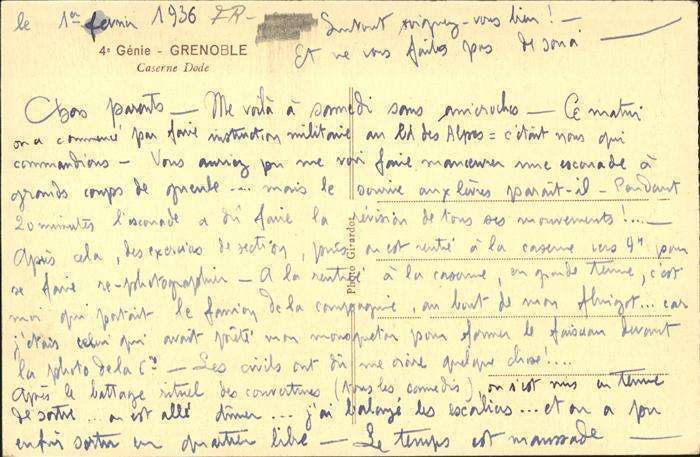 le 1er février 1936
Surtout soignez-vous bien ! —
4e Génie - GRENOBLE
Et ne vous faites pas de souci —
Caserne Dode
Chers parents — Me voilà à samedi sans anicroches — Ce matin
on a commencé par faire instruction militaire au Bd des Alpes = c'était nous qui
commandions — Vous auriez pu me voir faire manœuvrer une escouade à
grands coups de gueule .... mais le sourire aux lèvres paraît-il — Pendant
20 minutes l'escouade a dû faire la révision de tous ses mouvements !.... —
Après cela, des exercices de section, puis on est rentré à la caserne vers 9h pour
se faire re-photographier — A la rentrée à la caserne, en grande tenue, c'est
moi qui portait le fanion de la compagnie, au bout de mon ... car
j'étais celui qui avait prêté mon mousqueton pour former le faisceau devant
la photo de la Cie — Les civils ont dû me croire quelque chose !....
Après le battage rituel des couvertures (tous les samedis) on s'est mis en tenue
de sortie ... on est allé dîner .... j'ai balayé les escaliers ... et on a pu
enfin sortir en quartier libre — Le temps est maussade —
Photo Girardot